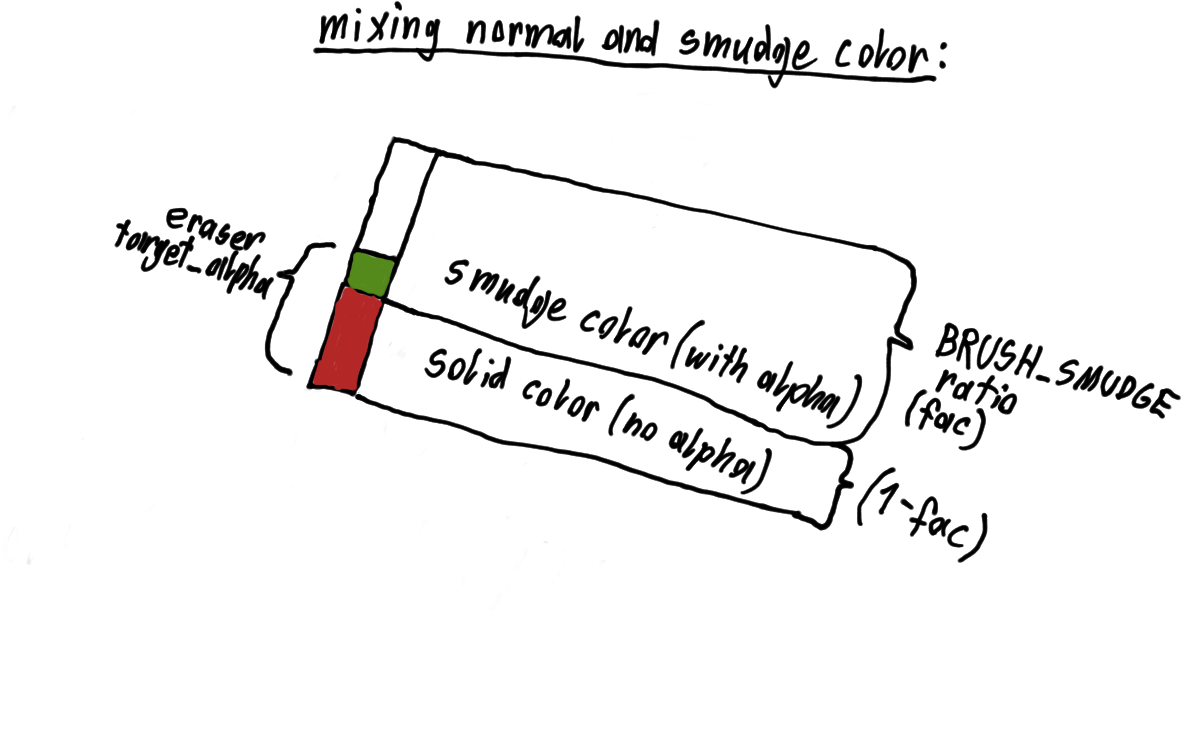 mixing normal and smudge color:
eraser
target_alpha
smudge color (with alpha)
solid color (no alpha)
BRUSH_SMUDGE
ratio
(fac)
(1-fac)